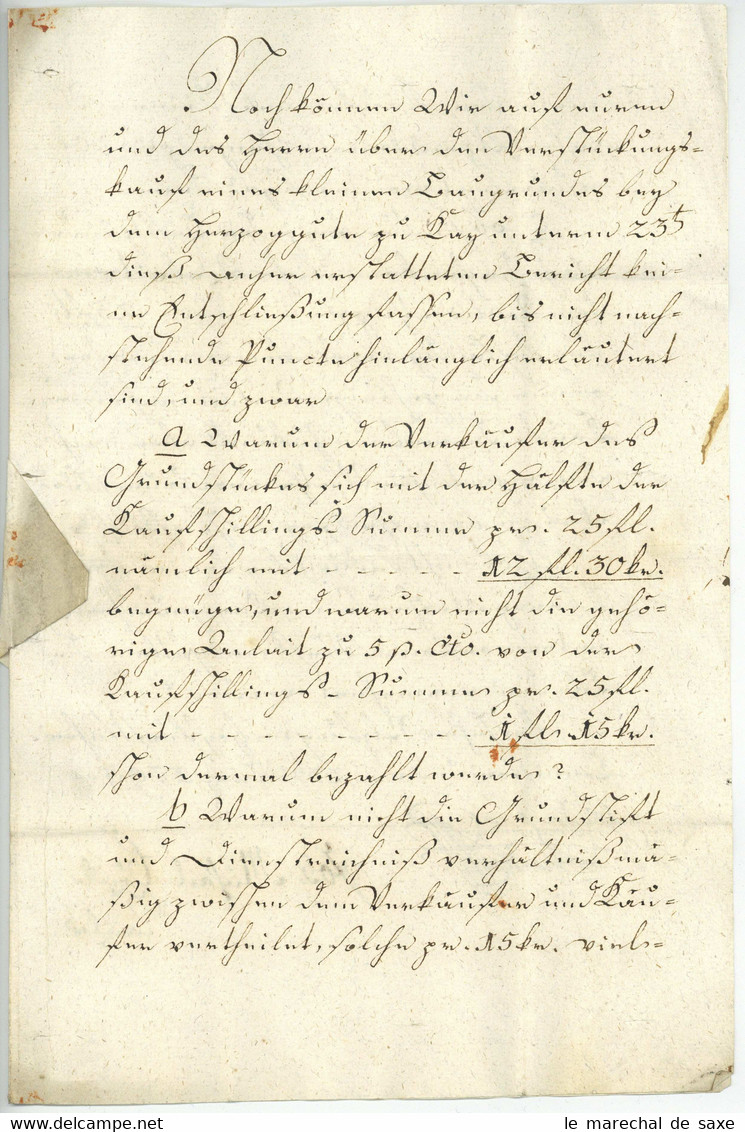 Noch können Wir auf euren
und des Herrn über den Verstückungs-
kauf eines kleinen Baugrundes bey
dem Herzoggute zu Kay unterm 23t
dieß anher erstatteten Bericht kei-
ne Entschließung fassen, bis nicht nach-
stehende Puncte hinlänglich erläutert
sind, und zwar
a Warum der Verkäufer des
Grundstückes sich mit der Hälfte der
Kaufshillings-Summe pr. 25 fl.
nämlich mit - - - - - 12 fl. 30 kr.
begnüge, und warum nicht die gehö-
rige Anlait zu 5 p. Cto. von der
Kaufshillings-Summe pr. 25 fl.
mit - - - - - - - - - 1 fl. 15 kr.
schon dermal bezahlt werde?
b Warum nicht die Grundstift
und Dienstreichniß verhältnißmä-
ßig zwischen dem Verkäufer und Käu-
fer vertheilet, solche pr. 15 kr. viel-
le marechal de saxe